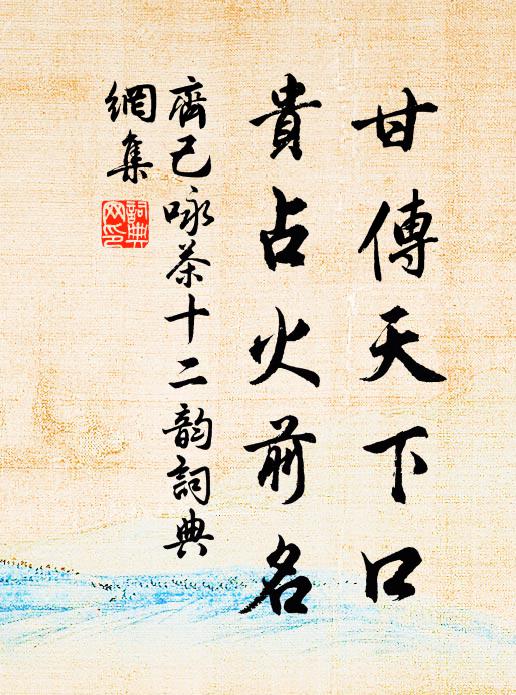 甘傳天下口
貴占火前名
齊己咏茶十二韵詞典
網集
詞典
网印